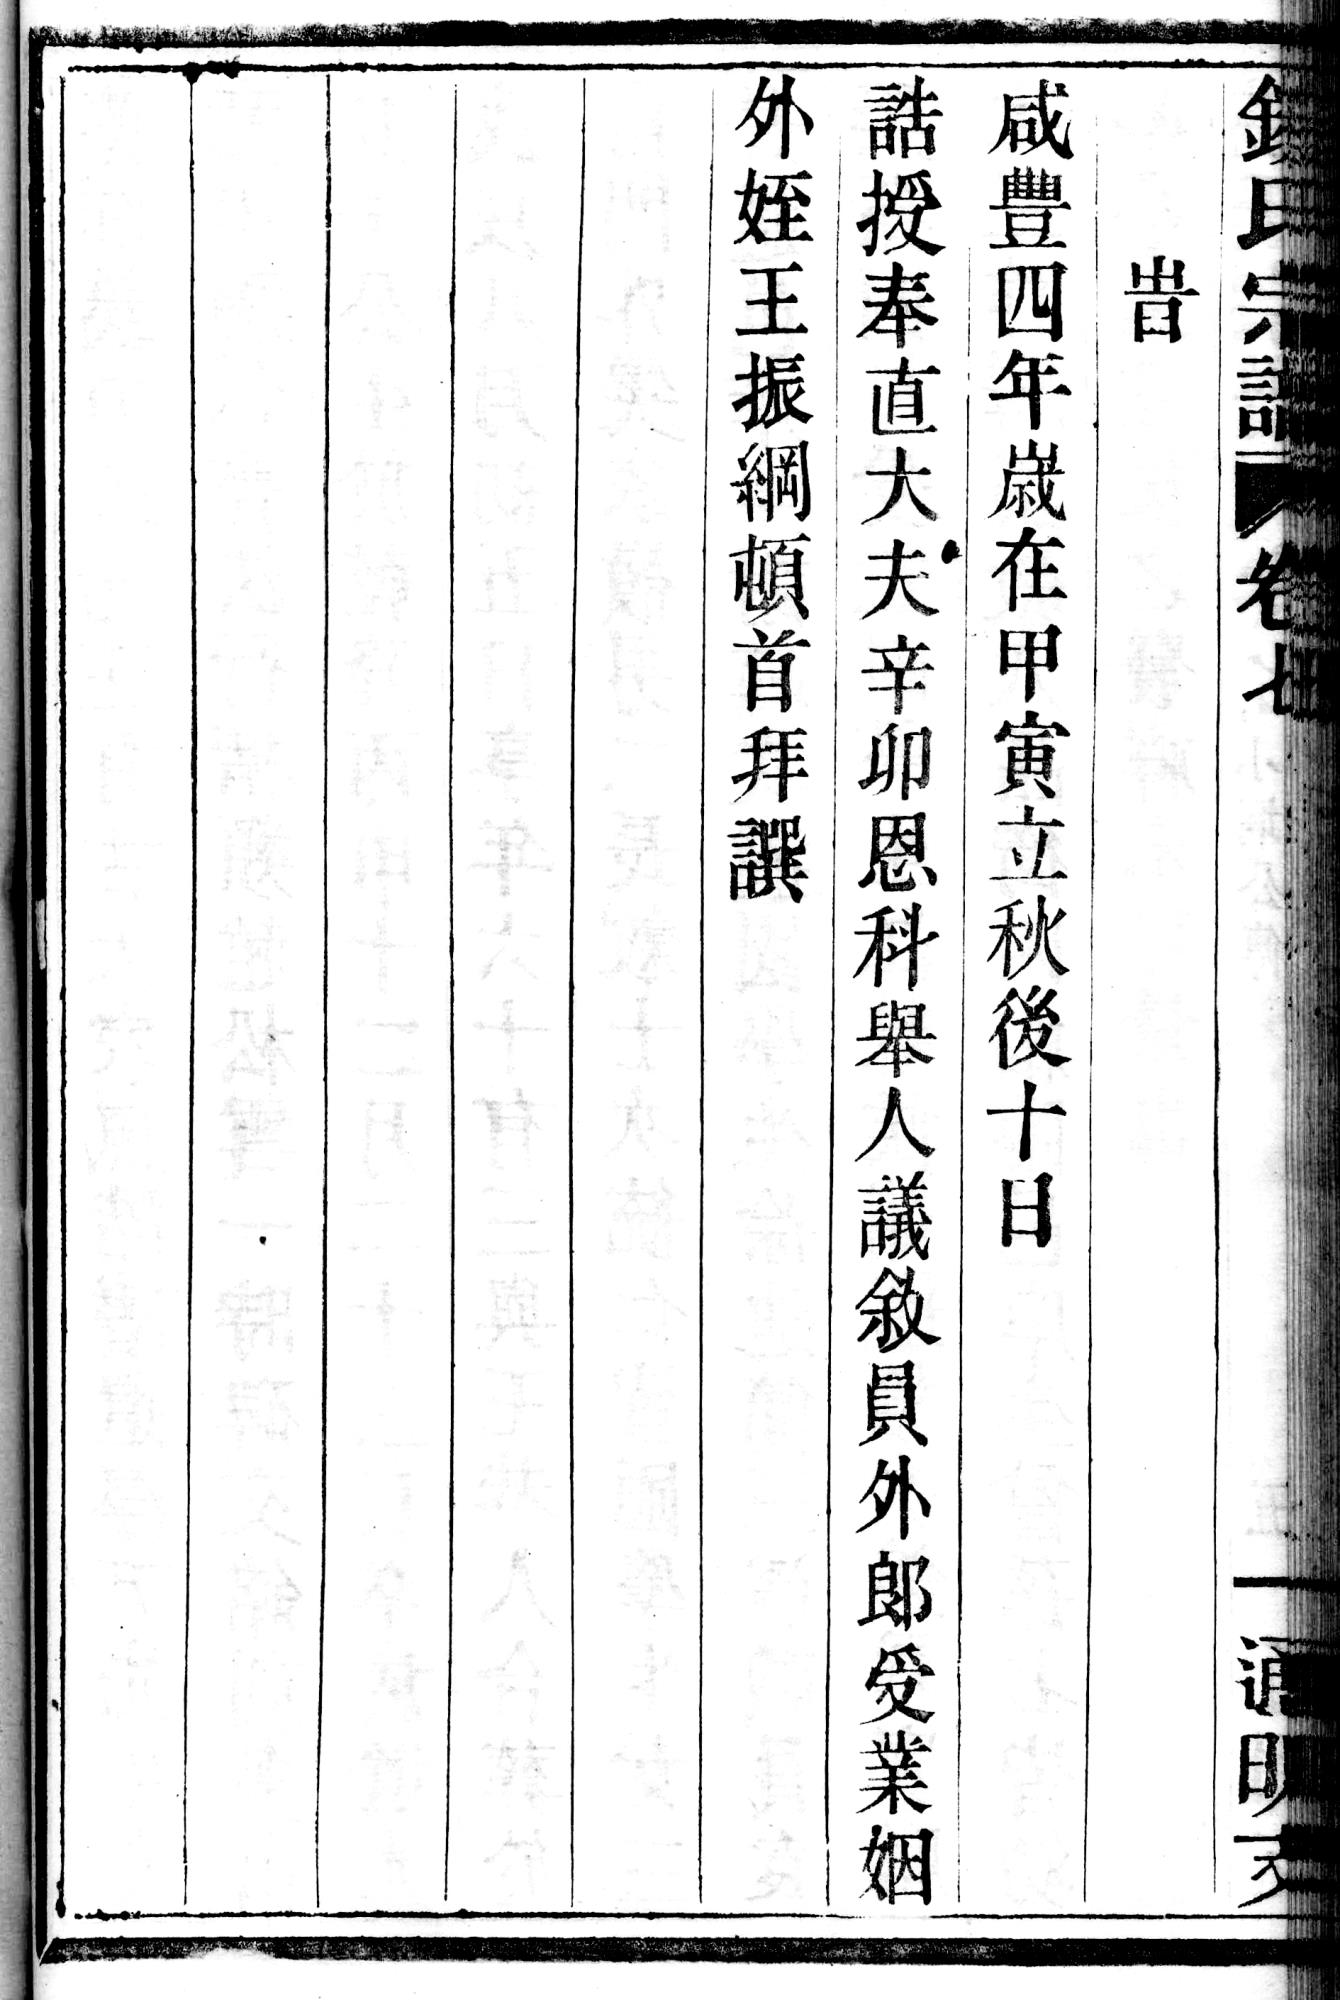 氏宗譜 卷七
旹
咸豐四年歲在甲寅立秋後十日
誥授奉直大夫辛卯恩科舉人議敘員外郎受業姻
外姪王振綱頓首拜譔